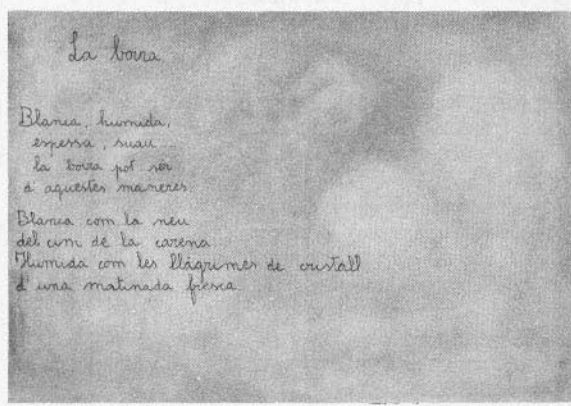 La boira
Blanca, humida,
espessa, suau
la boira pot ser
d'aquestes maneres
Blanca com la neu
del cim de la carena
Humida com les llàgrimes de cristall
d'una matinada fresca